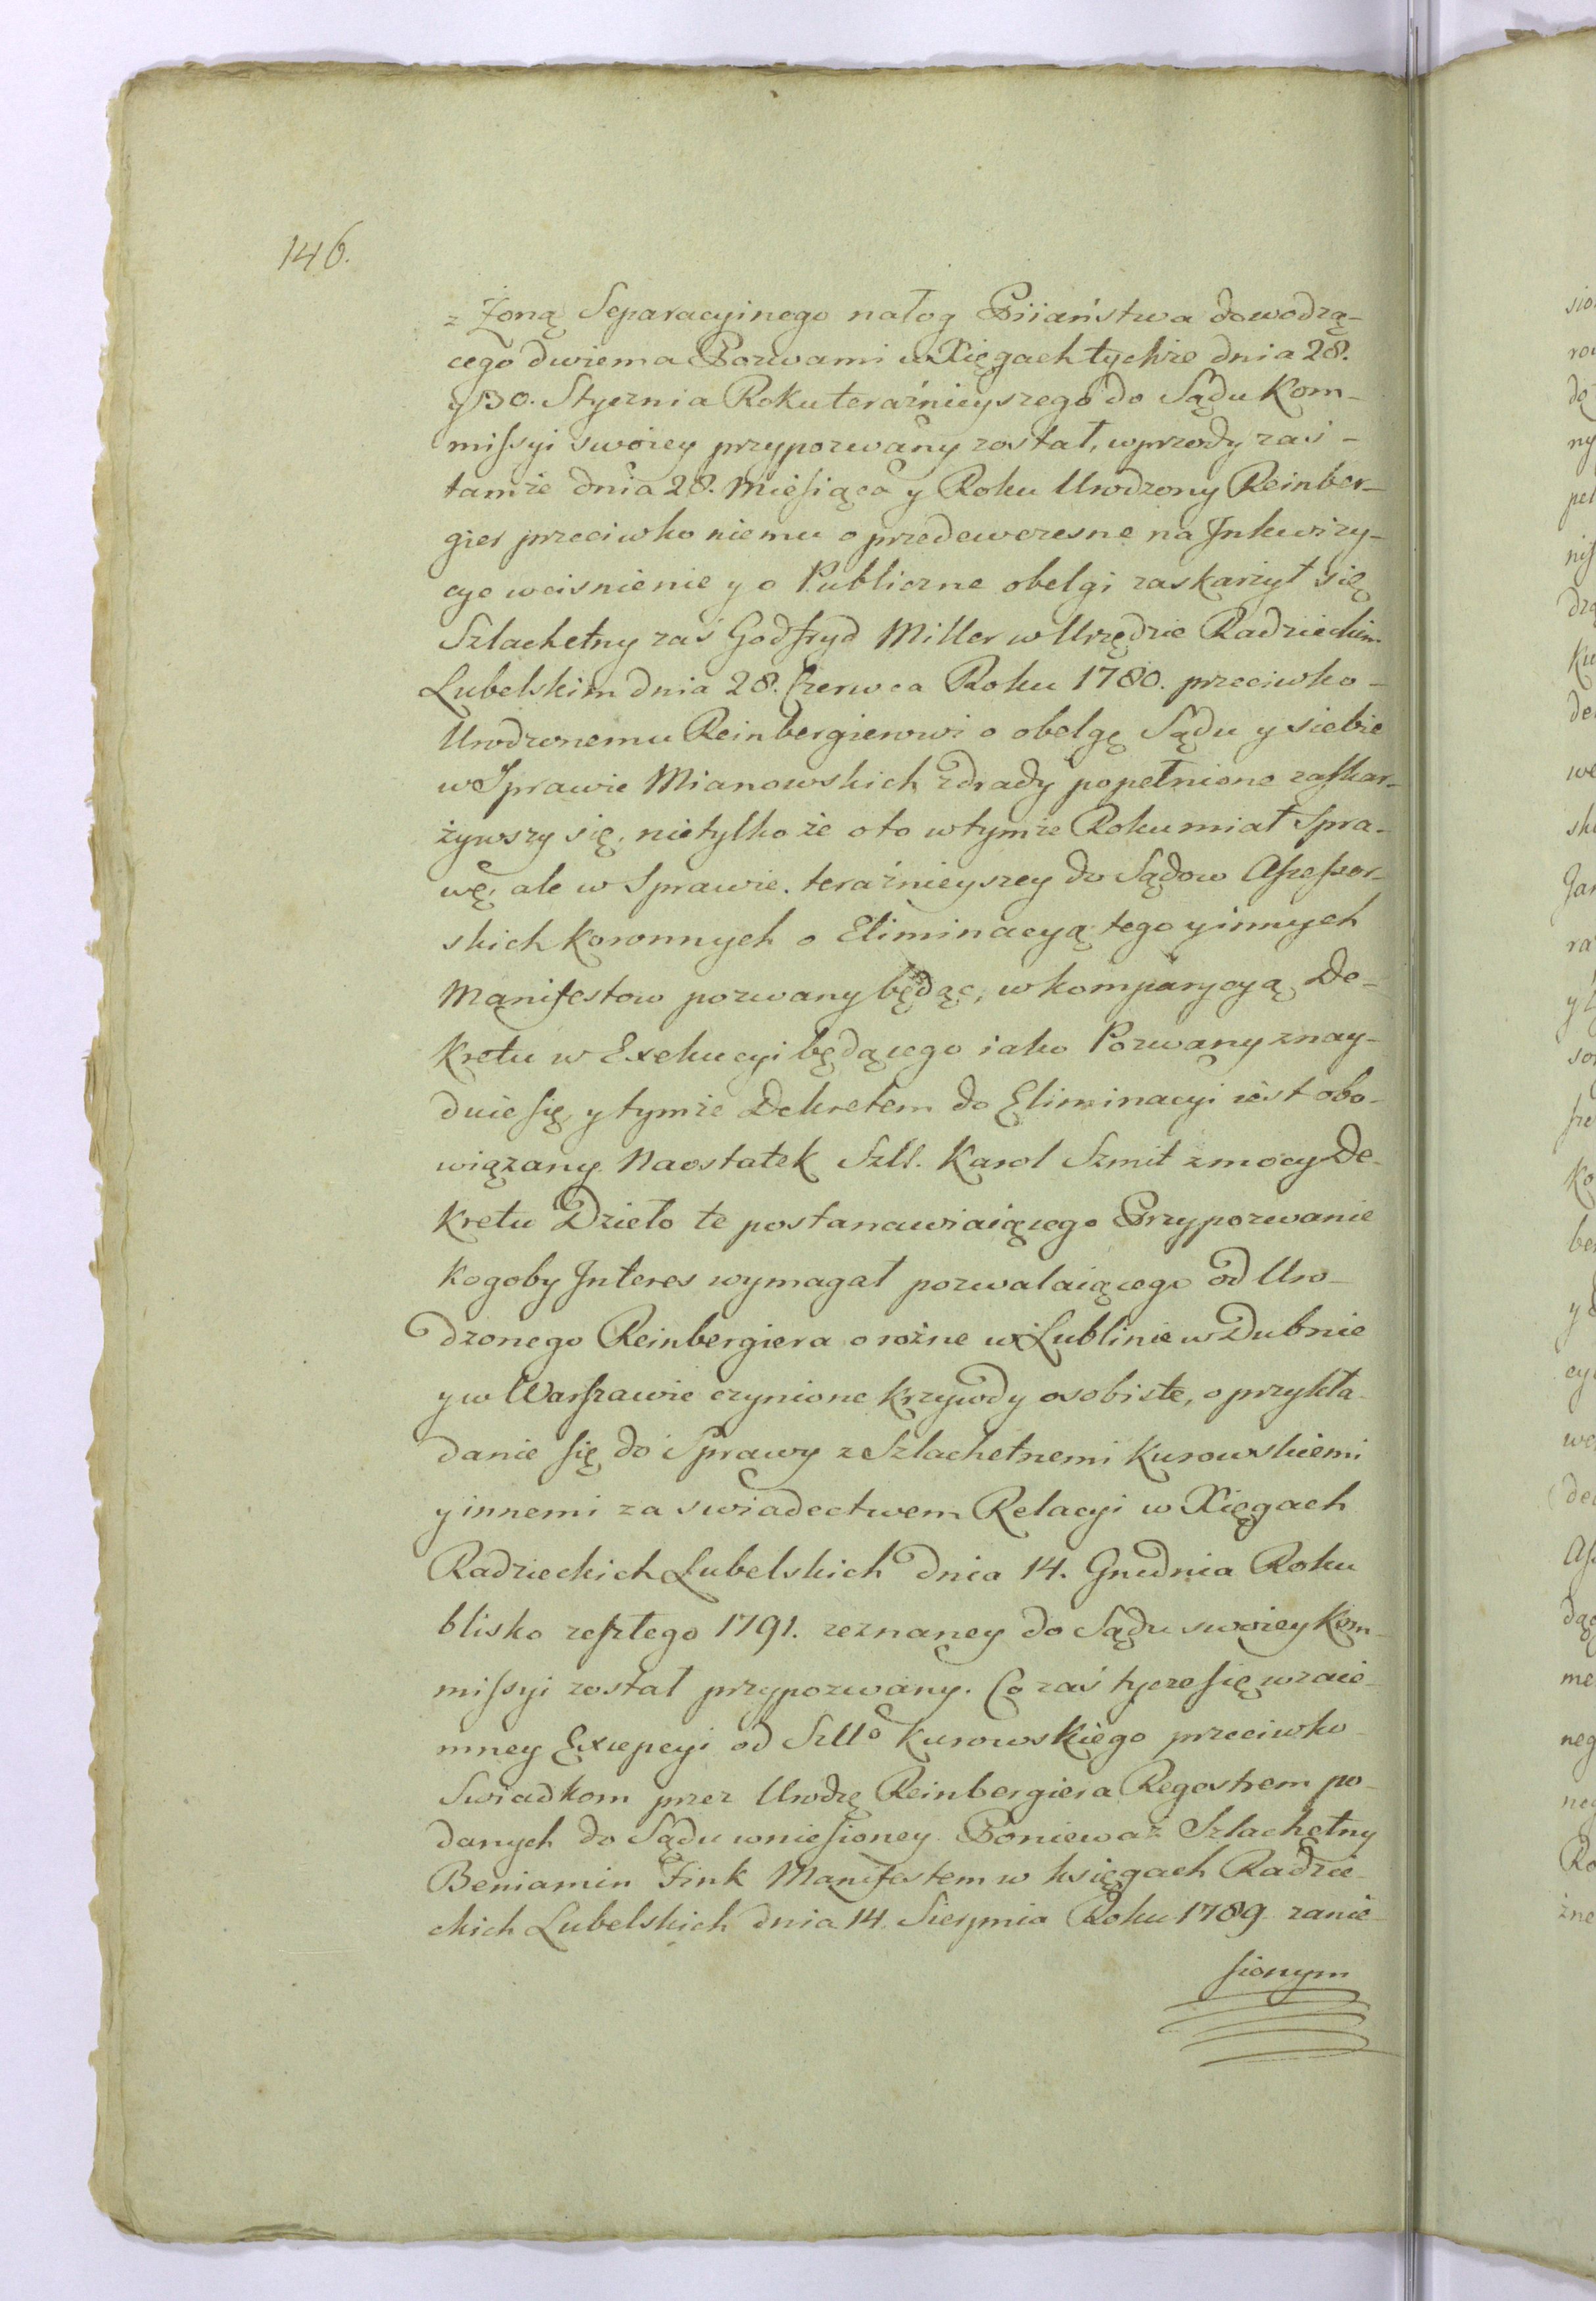 146.
z Żoną Separacyinego nałog Piiaństwa dowodzą-
cego dwiema Pozwami w Xięgach tychże dnia 28.
y 30. Stycznia Roku teraźnieyszego do Sądu Kom-
missyi swoiey przypozwany został, wprzody zaś -
tamże dnia 28. Miesiąca y Roku Urodzony Reinber-
gier przeciwko niemu o przedewczesne na Inkwizy-
cye wcisnienie y o Publiczne obelgi zaskarżył się
Szlachetny zaś Godfryd Miller w Urzędzie Radzieckim
Lubelskim dnia 28. Czerwca Roku 1780. przeciwko -
Urodzonemu Reinbergierowi o obelgę Sądu y siebie
w Sprawie Mianowskich zdrady popełnione zaskar-
żywszy się, nietylko że oto w tymże Roku miał Spra-
wę, ale w Sprawie. teraźnieyszey do Sądow Assessor-
skich Koronnych o Eliminacyą tego y innych
Manifestow pozwany będąc, w komparycyą De-
kretu w Exekucyi będącego iako Pozwany znay-
duie się, y tymże Dekretem do Eliminacyi iest obo-
wiązany. Naostatek Szll. Karol Szmit z mocy De-
kretu Dzieło te postanawiaiącego Przypozwanie
kogoby Interes wymagał pozwalaiącego od Uro-
dzonego Reinbergiera o rożne w Lublinie w Dubnie
y w Warszawie czynione krzywdy osobiste, o przykła-
danie się do Sprawy z Szlachetnemi Kurowskiemi
y innemi za swiadectwem Relacyi w Xięgach
Radzieckich Lubelskich dnia 14. Grudnia Roku
blisko zeszłego 1791. zeznaney do Sądu swoiey Kom-
missyi został przypozwany. Co zaś tycze się wzaie-
mney Excepcyi od Szllo Kurowskiego przeciwko
Swiadkom przez Urodzę Reinbergiera Regestrem po-
danych do Sądu wniesioney. Ponieważ Szlachetny
Beniamin Fink Manifestem w księgach Radzie-
ckich Lubelskich dnia 14. Sierpnia Roku 1789 zanie-
sionym